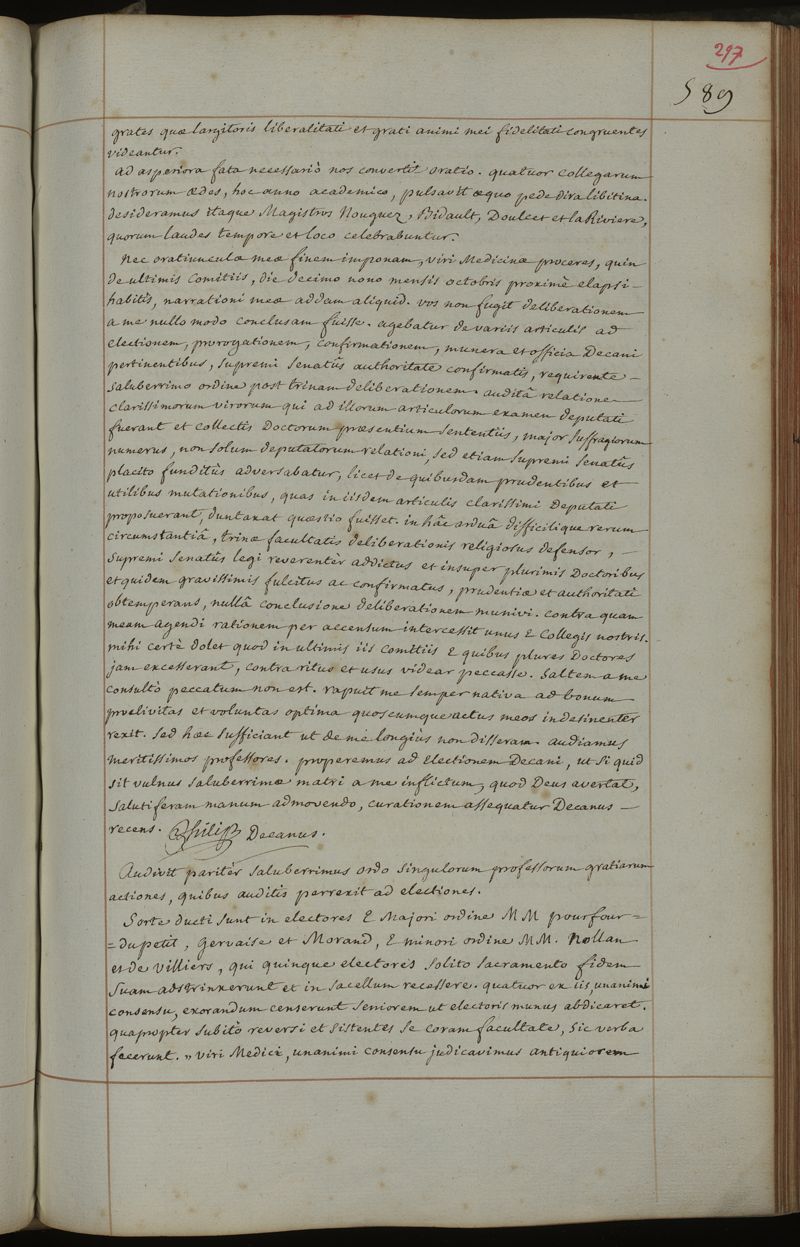 297
589
grates quæ largitoris liberalitati et grati animi mei fidelitati congruentes
videantur.
ad asperiora fata necessariò nos convertit oratio. quatuor collegarum
nostrorum ædes, hoc anno academico, pulsavit æquo pede dira libitina.
desideramus itaque Magistros Nouguez, Bidault, Doulcet et la Riviere,
quorum laudes tempore et loco celebrabuntur.
Nec oratiunculæ meæ finem imponam, viri Medicinæ proceres, quin
de ultimis comitiis, die decimo nono mensis octobris proximè elapsi -
habitis, narrationi meæ addam aliquid. vos non fugit deliberationem
a me nullo modo conclusam fuisse. agebatur de variis articulis ad
electionem, prorogationem, confirmationem, munera et officia Decani
pertinentibus, supremi Senatûs authoritate confirmatis, requirente -
saluberrimo ordine post trinam deliberationem. auditâ relatione
clarissimorum virorum qui ad illorum articulorum examen deputati
fuerant et collectis Doctorum præsentium sententiis, major suffragiorum
numerus, non solum deputatorum relationi, sed etiam supremi Senatûs
placito funditùs adversabatur, licet de quibusdam prudentibus et
utilibus mutationibus, quas in iisdem articulis clarissimi deputati
proposuerant, duntaxat quæstio fuisset. in hâc arduâ difficilique rerum
circumstantiâ, trinæ facultatis deliberationis religiosus defensor, -
supremi Senatûs legi reverentèr addictus et insuper plurimis Doctoribus
et quidem gravissimis fulcitus ac confirmatus, prudentiæ et authoritati
obtemperans, nullâ conclusione deliberationem munivi. contra quam
meam agendi rationem per accensum intercessit unus è collegis nostris.
mihi certè dolet quod in ultimis iis comitiis è quibus plures Doctores
jam excesserant, contra ritus et usus videar peccasse. saltem a me
consultò peccatum non est. rapuit me semper nativa ad bonum
proclivitas et voluntas optima quoscumque actus meos indesinenter
rexit. sed hæc sufficiant ut de me longiùs non disseram. audiamus
meritissimos professores. properemus ad electionem Decani, ut si quid
sit vulnus saluberrimæ matri a me inflictum, quod Deus avertat,
salutiferam manum admovendo, curationem assequatur Decanus -
recens. Philip Decanus.
Audivit paritèr saluberrimus ordo singulorum professorum gratiarum
actiones, quibus auditis perrexit ad electiones.
Sorte ducti sunt in electores è Majori ordine MM pourfour =
= dupetit, Gervaise et Morand, è minori ordine MM. Nollan
et de Villiers, qui quinque electores solito sacramento fidem
suam adstrinxerunt et in sacellum recessere. quatuor ex iis, unanimi
consensu, exorandum censerunt seniorem ut electoris munus abdicaret.
quapropter subitò reversi et sistentes se coram facultate, sic verba
fecerunt. " viri Medici, unanimi consensu judicavimus antiquiorem